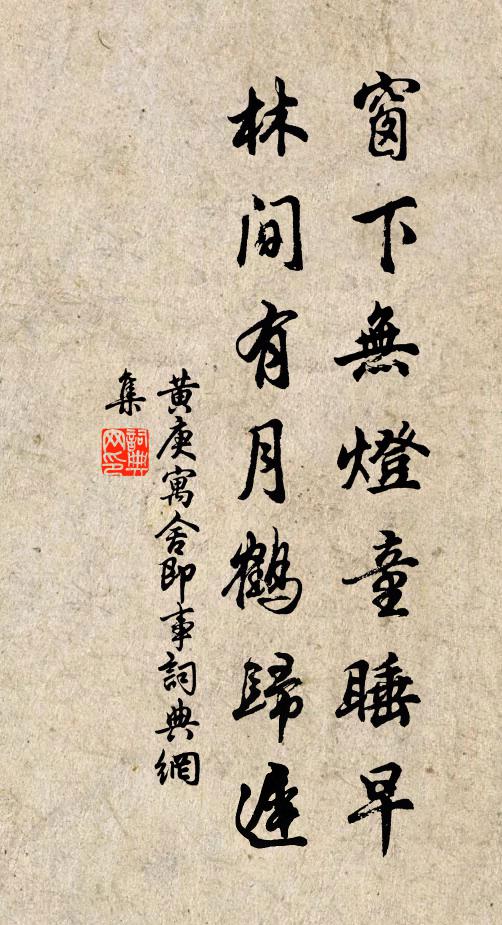 窗下無燈童睡早
林間有月鶴歸遲
黄庚寓舍即事詞典網
集
詞典
网印